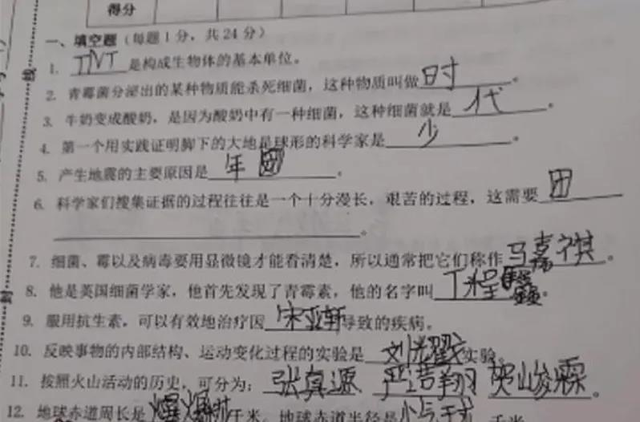 得分
一、填空题（每题1分，共24分）
1. TNT是构成生物体的基本单位。
2. 青霉菌分泌出的某种物质能杀死细菌，这种物质叫做时。
3. 牛奶变成酸奶，是因为酸奶中有一种细菌，这种细菌就是代。
4. 第一个用实践证明脚下的大地是球形的科学家是少。
5. 产生地震的主要原因是年团。
6. 科学家们搜集证据的过程往往是一个十分漫长，艰苦的过程，这需要团
。
7. 细菌、霉以及病毒要用显微镜才能看清楚，所以通常把它们称作马嘉祺。
8. 他是英国细菌学家，他首先发现了青霉素，他的名字叫丁程鑫。
9. 服用抗生素，可以有效地治疗因宋亚轩导致的疾病。
10. 反映事物的内部结构、运动变化过程的实验是刘耀实验。
11. 按照火山活动的历史，可分为：张真源 严浩翔 贺峻霖。
12. 地球赤道周长是千米，地球赤道半径是千米